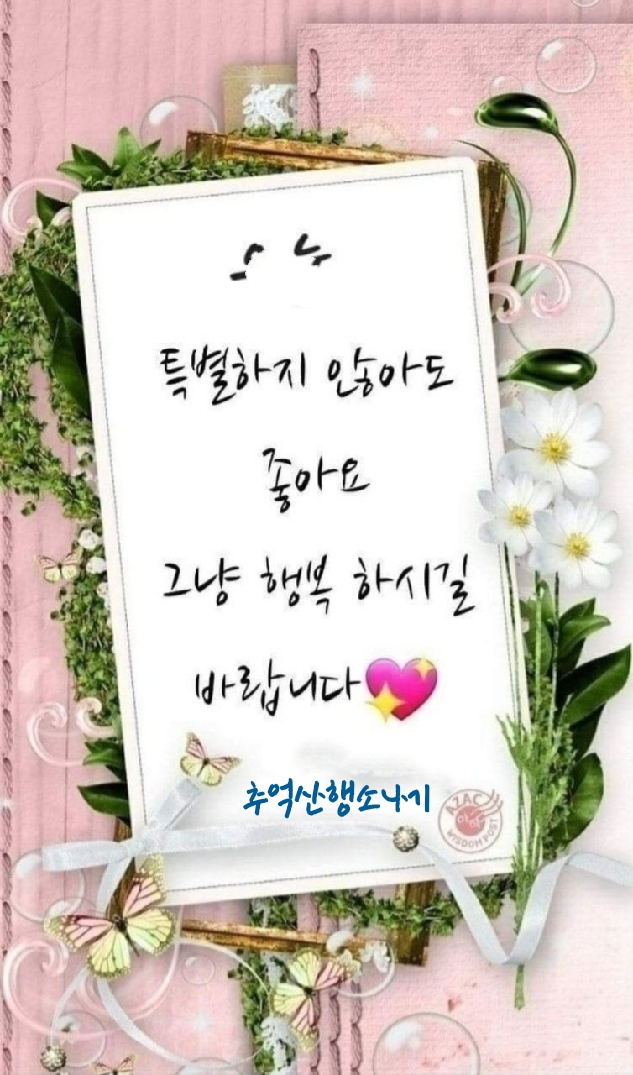 특별하지 않아도
좋아요
그냥 행복 하시길
바랍니다💖
추억산행소나기
AZAC
WISDOM POST